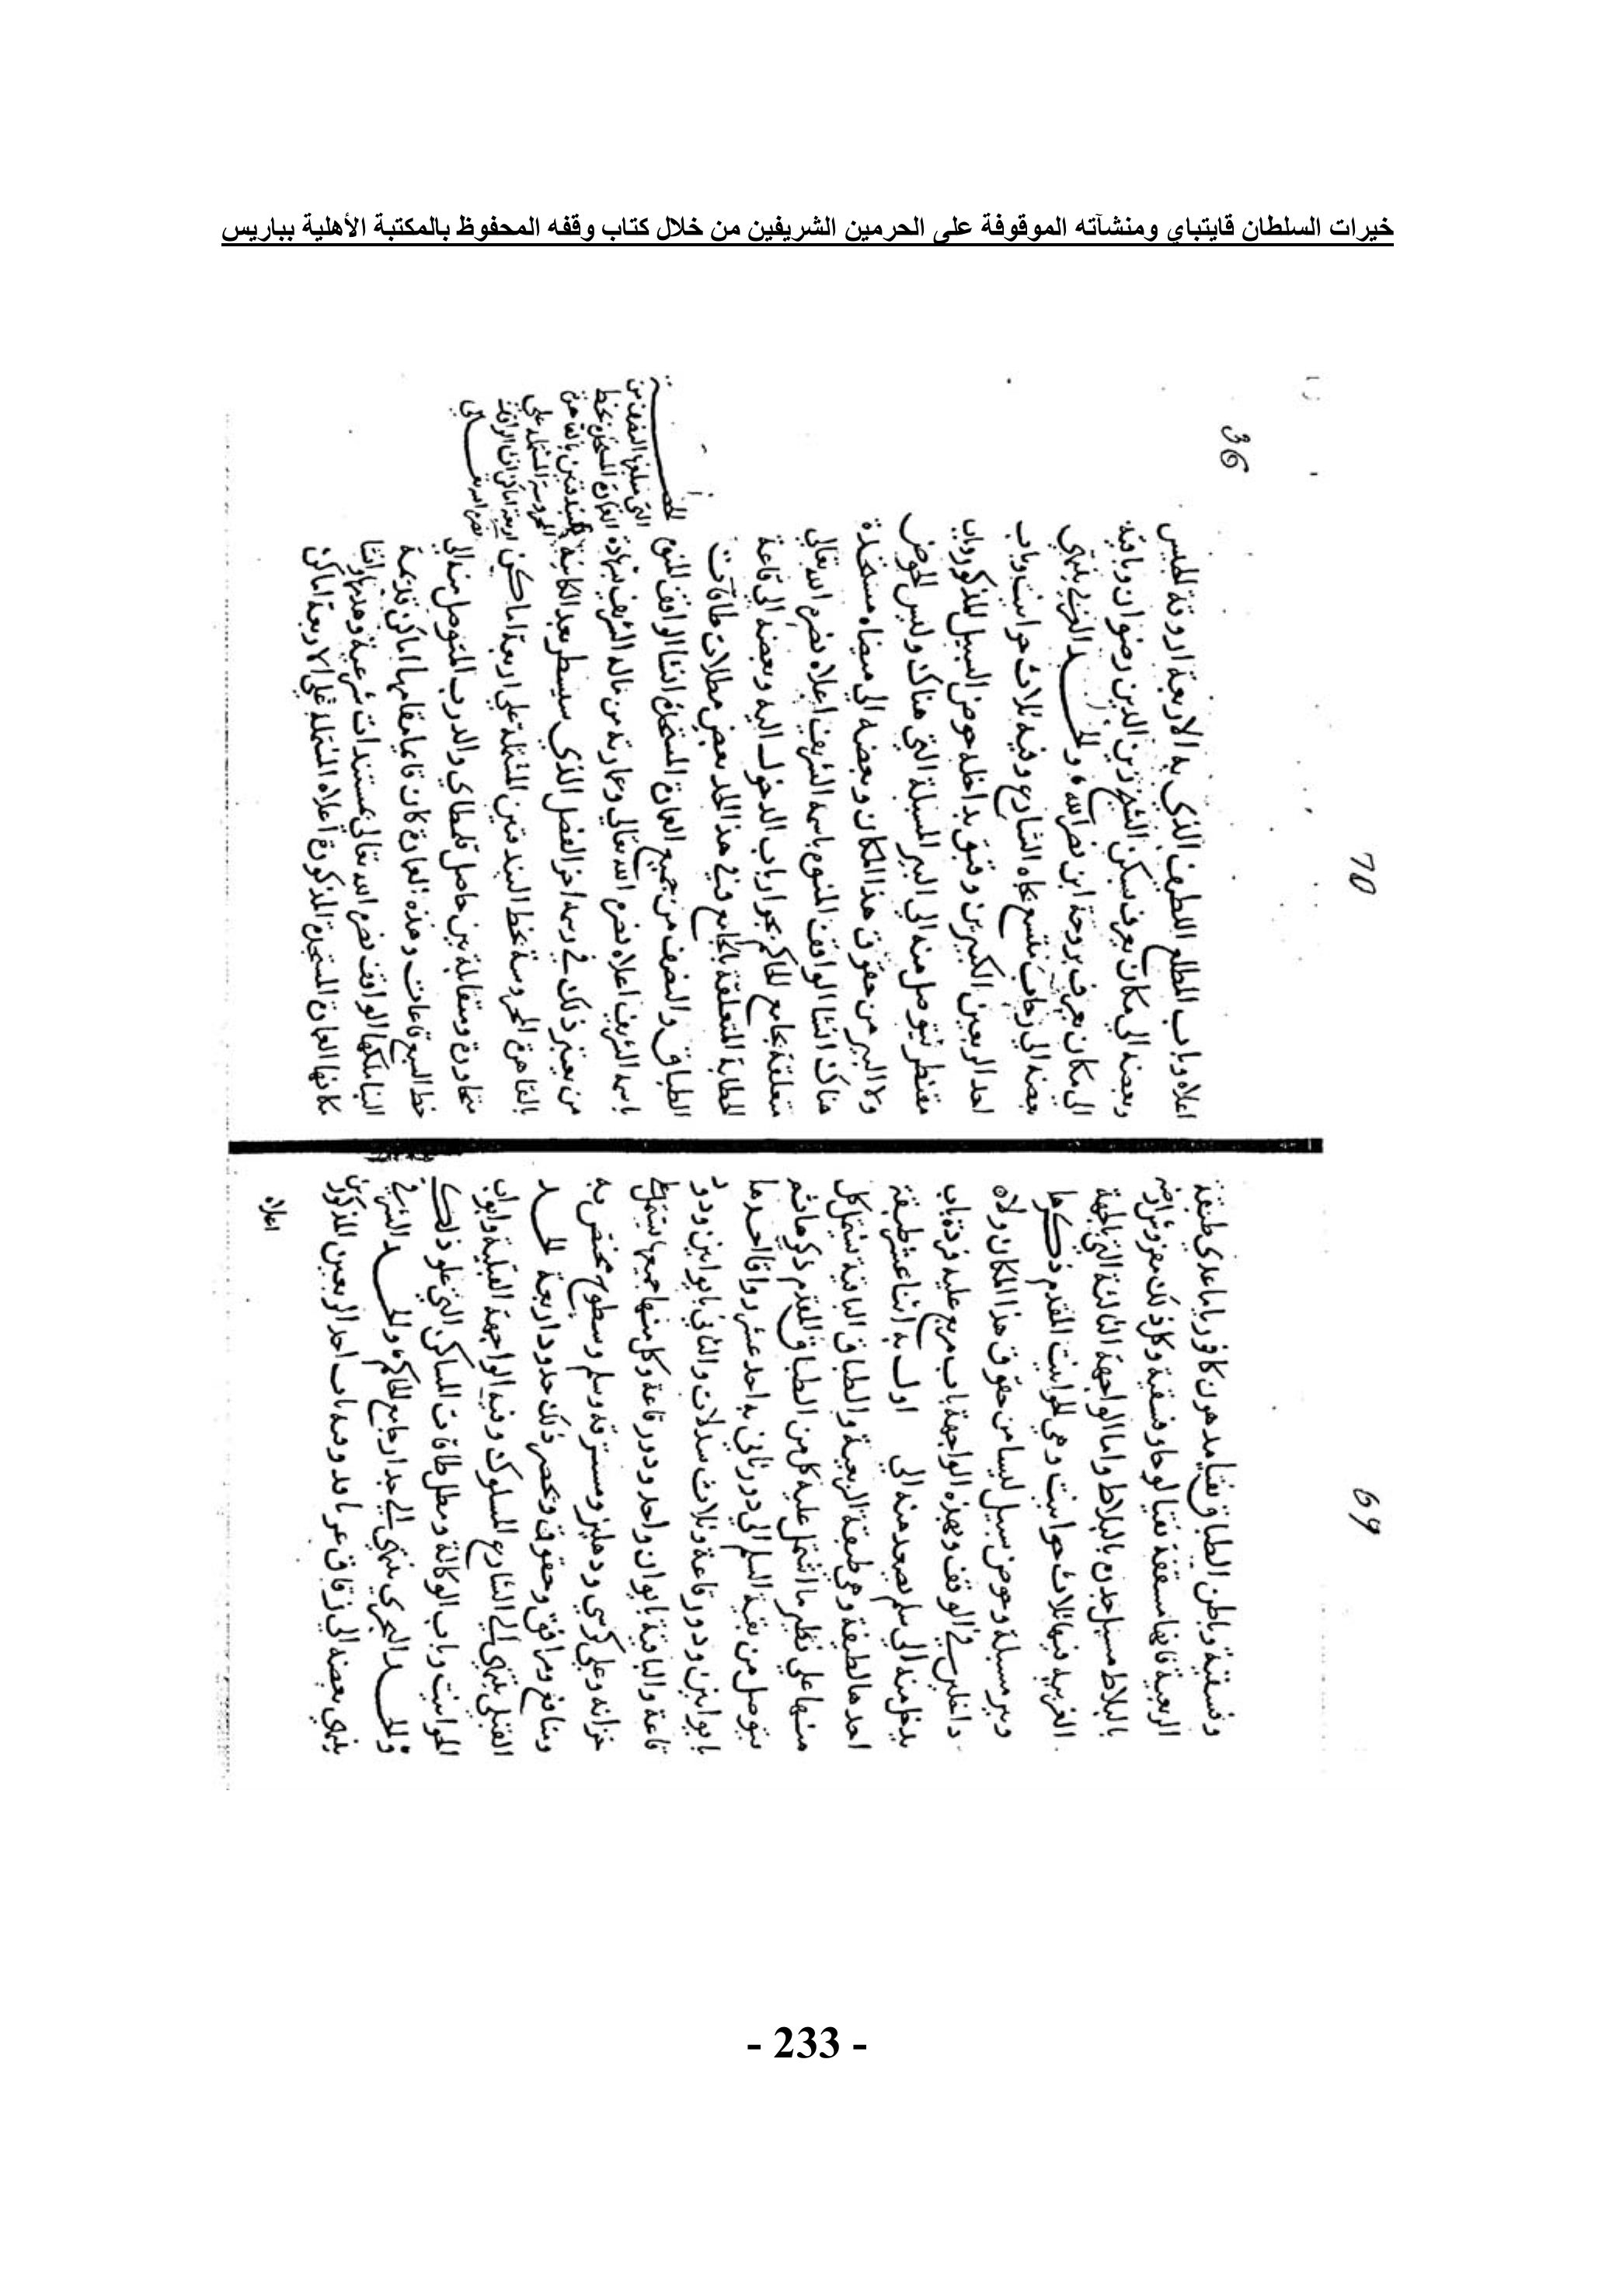 خيرات السلطان قايتباي ومنشآته الموقوفة على الحرمين الشريفين من خلال كتاب وقفه المحفوظ بالمكتبة الأهلية بباريس
36
69
وفسقية وباطن الطباق نقيا مدهون كافوريا ماعدي طبقة
الربعية فانها مسقفة نقيا لوحا وفسقية وكل ذلك مفروش ارضه
بالبلاط مسبل جدره بالبلاط واما الواجهة الثالثة التي بالجهة
الغربيه فبها ثلاث حوانيت وهي الحوانيت المقدم ذكرها
وبير مسبلة وحوض سبيل ليسا من حقوق هذا المكان ولاه
داخلين في الوقف وبهذه الواجهة باب مربع عليه فردة باب
يدخل منه الي سلم يصعد منه الي اول به اثنا عشر طبقة
احدها لطيفة وهي طبقة الربعية والطباق الباقية تشتمل كل
منها علي نظير ما اشتمل عليه كل من الطباق المقدم ذكرها ثم
يتوصل من بقية السلم الي دور ثاني به احد عشر رواقا احدها
بايوانين ودور قاعة وثلاث سدلات والثاني بايوانين ودور
قاعة والباقية بايوان واحد ودور قاعة وكل منها جميعها يشتمل علي
خزانه وعلي كرسي ودهليز ومسترقه وسلم وسطوح مختص به
ومنافع ومرافق وحقوق ويحصر ذلك حدود اربعة الحد
القبلي ينتهي الي الشارع المسلوك وفيه الواجهة القبلية وابواب
الحوانيت وباب الوكالة ومطل طاقات المساكن التي علو ذلك
والحد البحري ينتهي الي جدار جامع الحاكم والحد الشرقي
ينتهي بعضه الي زقاق غير نافد وفيه باب احد الربعين المذكورين
اعلاه
70
اعلاه وباب المطلع اللطيف الذي به الاربعة اروقة الحبيس
وبعضه الي مكان يعرف بسكن الشيخ زين الدين رضوان وباقيه
الي مكان يعرف بزوجة ابن نصر الله والحد الغربي ينتهي
بعضه الي رحاب متسع تجاه الشارع وفيه ثلاث حوانيت وباب
احد الربعين الكبيرين وقبو بداخله حوض السبيل المذكور وباب
مقنطر يتوصل منه الي البير المسبلة التي هناك وليس الحوض
ولا البير من حقوق هذا المكان وبعضه الي ميضاه مستجدة
هناك انشا الواقف المنوه باسمه الشريف اعلاه نصره الله تعالي
متعلقة بجامع الحاكم بجوار باب الدخول اليه وبعضه الي قاعة
الخطابة المتعلقة بالجامع وفي هذا الحد بعض مطلات طاقات
الطباق والنصف من جميع العمارة المستجدة انشا الواقف المنوه
باسمه الشريف اعلاه نصره الله تعالي وعمارته من ماله الشريف بشهادة
من يعتبر ذلك في رسمه اخر الفصل الذي سيسطر بعد الكائنة
بالقاهرة المحروسة بخط البندقيين المشتملة علي اربعة اماكن
متجاورة ومتقابلة بين حاصل قلمطاي والدرب المتوصل منه الي
خط السبع قاعات وهذه العمارة كان قايما مقامها اماكن قديمة
البنا ملكها الواقف نصره الله تعالي بمستندات شرعية وهدمها وانشا
مكانها العمارة المستجدة المذكورة اعلاه المشتملة علي الاربعة اماكن
الحصة
التي مبلغها النصف من
العمارة المستجدة بخط
البندقيين بالقاهرة
المحروسة المشتملة علي
اربعة اماكن انشا الواقف
نصره الله تعالي
- 233 -